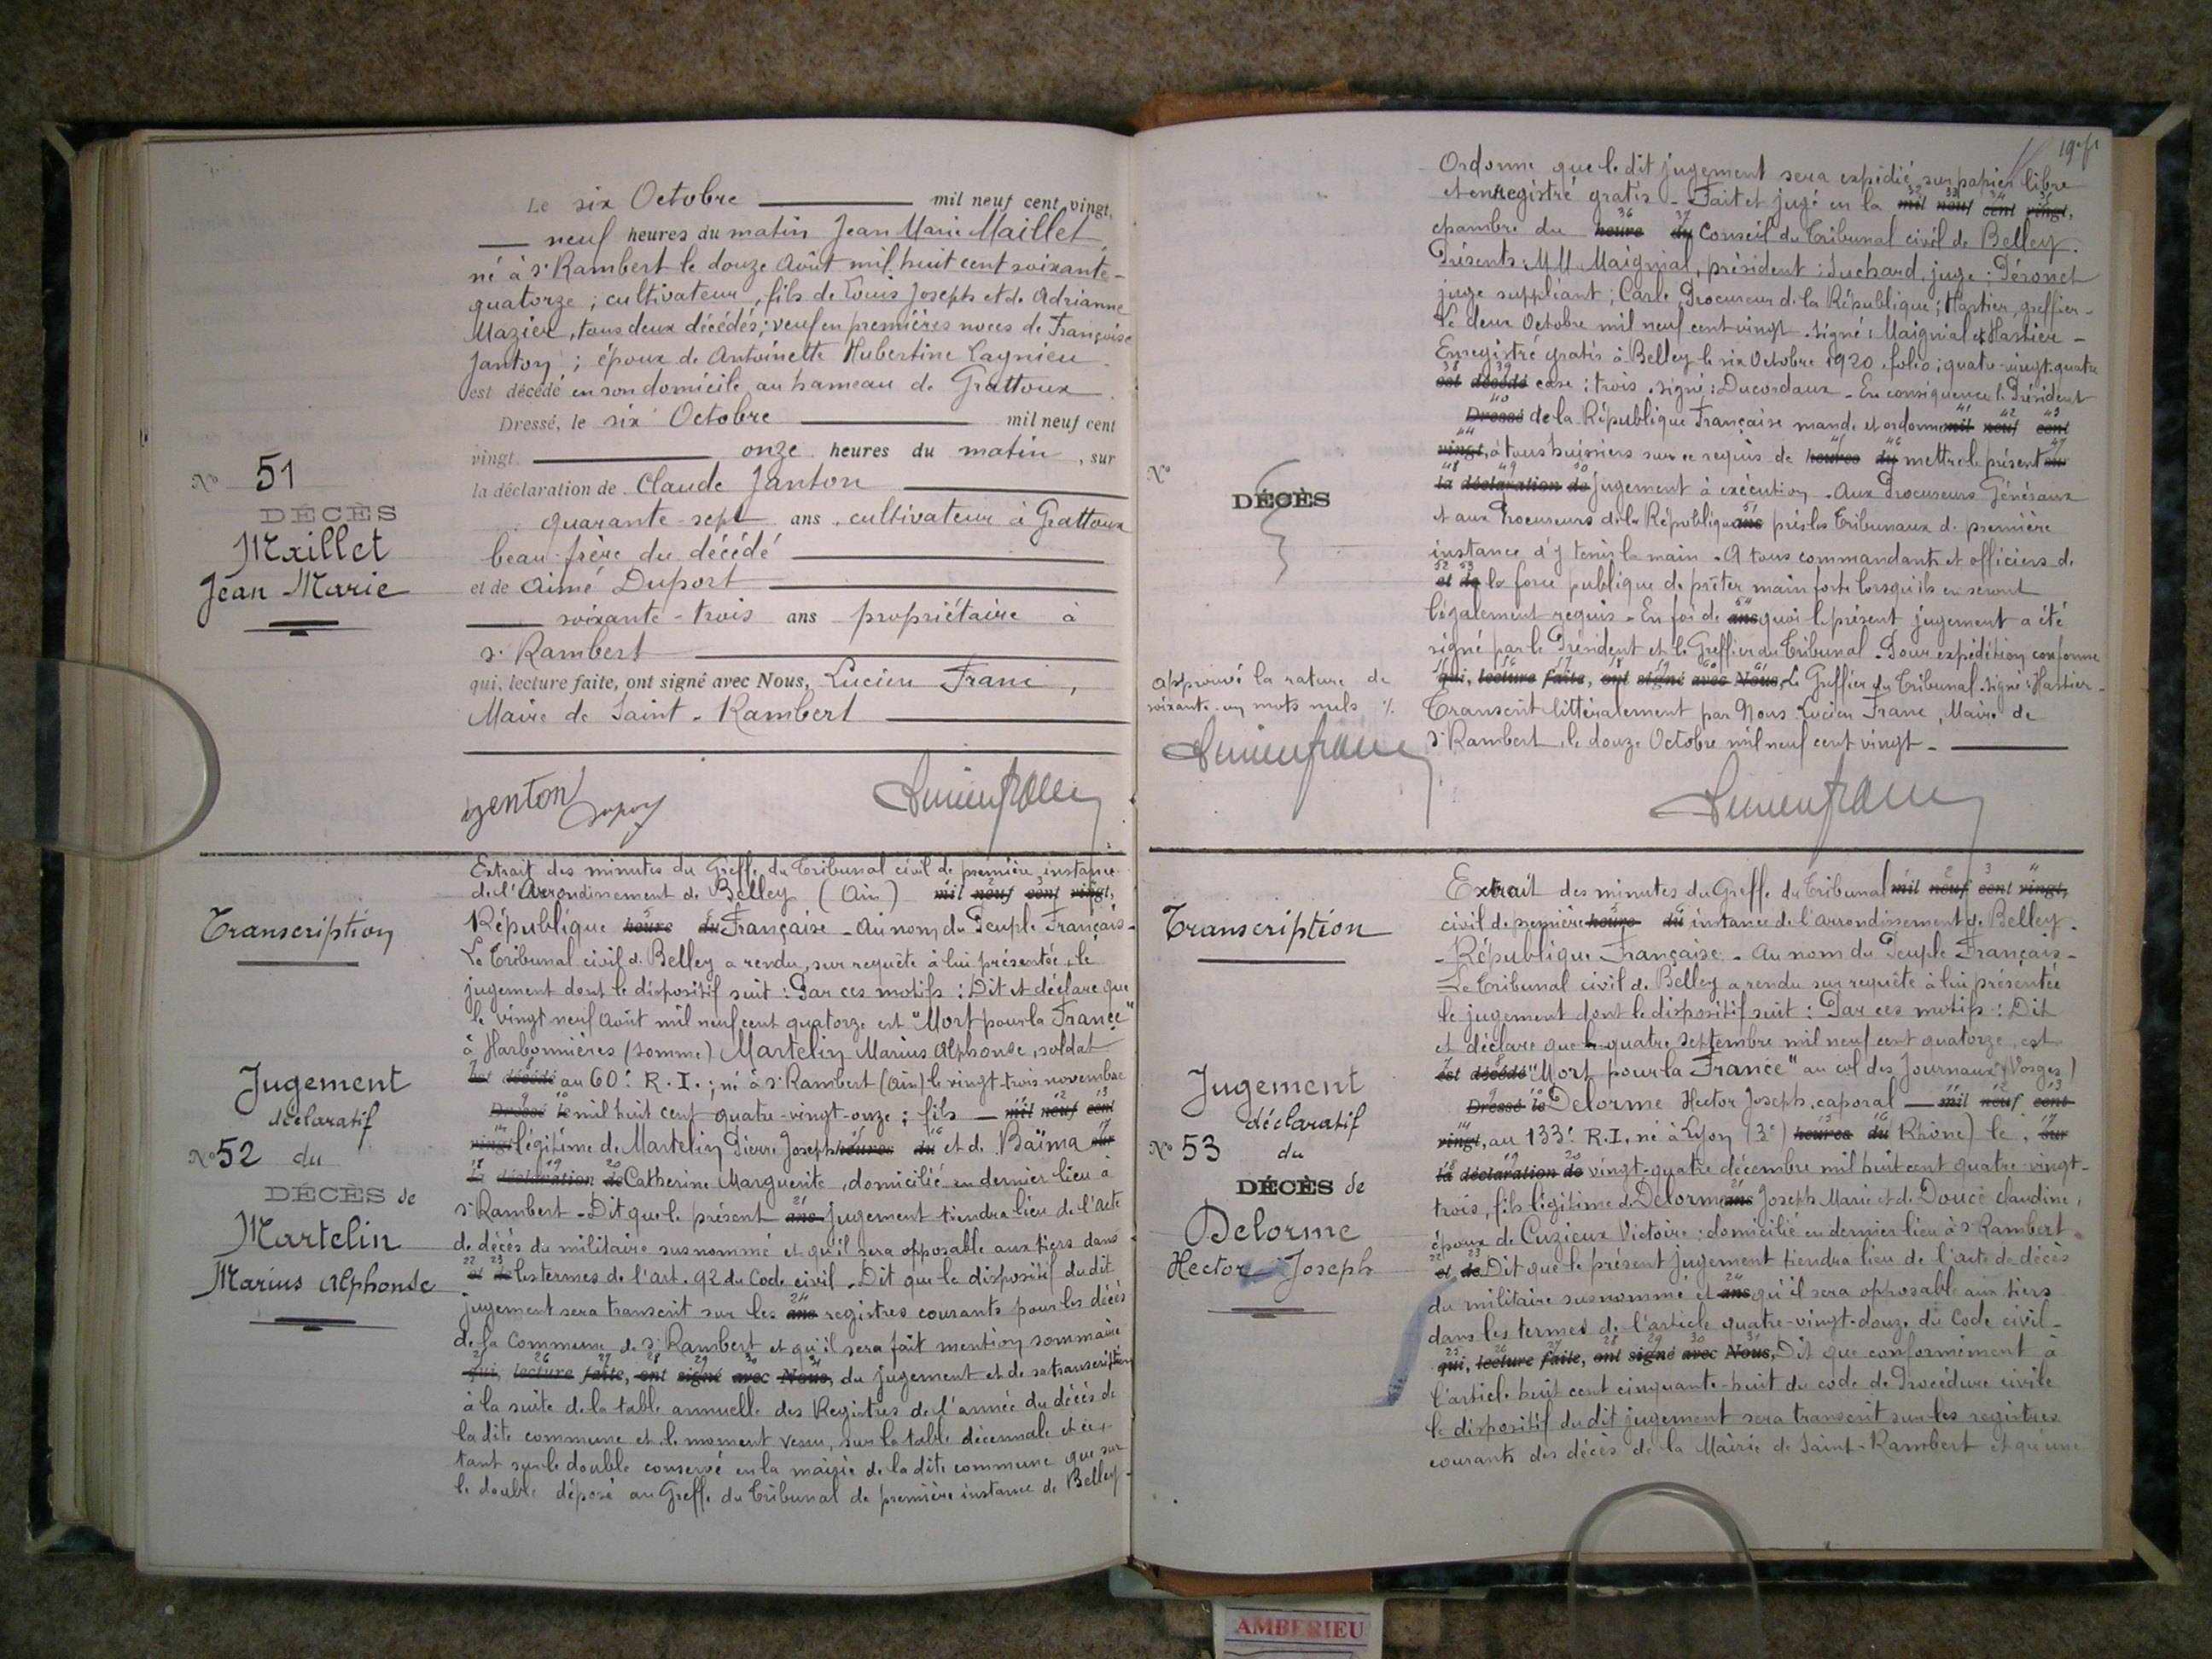 Le six Octobre mil neuf cent vingt,
neuf heures du matin Jean Marie Maillet
né à St Rambert le douze Août mil huit cent soixante-
quatorze ; cultivateur, fils de Louis Joseph et de Adrianne
Mazier, tous deux décédés ; veuf en premières noces de Françoise
Janton ; époux de Antoinette Hubertine Lagnieu
est décédé en son domicile au hameau de Grattoux
Dressé, le six Octobre mil neuf cent
vingt. onze heures du matin, sur
la déclaration de Claude Janton
quarante-sept ans, cultivateur à Grattoux
beau-frère du décédé
et de Aimé Duport
soixante-trois ans propriétaire à
St Rambert
qui, lecture faite, ont signé avec Nous, Lucien Franc,
Maire de Saint-Rambert
No 51
DÉCÈS
Maillet
Jean Marie
Transcription
Jugement
déclaratif
No 52 du
DÉCÈS de
Martelin
Marius Alphonse
Extrait des minutes du Greffe du Tribunal civil de première instance
de l'Arrondissement de Belley (Ain) mil neuf cent vingt,
République heure du Française - Au nom du Peuple Français -
Le Tribunal civil de Belley a rendu, sur requête à lui présentée, le
jugement dont le dispositif suit : Par ces motifs : Dit et déclare que
le vingt neuf Août mil neuf cent quatorze est "Mort pour la France"
à Harbonnières (Somme) Martelin Marius Alphonse, soldat
est décédé au 60e R.I. ; né à St Rambert (Ain) le vingt-trois novembre
Dressé le mil huit cent quatre-vingt-onze ; fils mil neuf cent
vingt légitime de Martelin Pierre Joseph heures du et de Baïma sur
la déclaration de Catherine Marguerite, domicilié en dernier lieu à
St Rambert - Dit que le présent ans jugement tiendra lieu de l'acte
de décès du militaire susnommé et qu'il sera opposable aux tiers dans
et de les termes de l'art. 92 du Code civil - Dit que le dispositif dudit
jugement sera transcrit sur les ans registres courants pour les décès
de la Commune de St Rambert et qu'il sera fait mention sommaire
qui, lecture faite, ont signé avec Nous, du jugement et de sa transcription
à la suite de la table annuelle des Registres de l'année du décès de
la dite commune et, le moment venu, sur la table décennale et ce,
tant sur le double conservé en la mairie de la dite commune que sur
le double déposé au Greffe du Tribunal de première instance de Belley -
Ordonne que le dit jugement sera expédié sur papier libre
et enregistré gratis - Fait et jugé en la mil neuf cent vingt,
chambre du heure du Conseil du Tribunal civil de Belley.
Présents : MM Maignial, président ; Suchard, juge ; Péronet
juge suppléant ; Carle, Procureur de la République ; Hastier, greffier -
Le deux Octobre mil neuf cent vingt. Signé : Maignial et Hastier -
Enregistré gratis à Belley le six Octobre 1920, folio : quatre-vingt-quatre
est décédé case : trois. signé : Ducordaux - En conséquence le Président
Dressé de la République Française mande et ordonne mil neuf cent
vingt, à tous huissiers sur ce requis de heures du mettre le présent sur
la déclaration de jugement à exécution - Aux Procureurs Généraux
et aux Procureurs de la République ans près les Tribunaux de première
instance d'y tenir la main - A tous commandants et officiers de
et de la force publique de prêter main forte lorsqu'ils en seront
légalement requis - En foi de ans quoi le présent jugement a été
signé par le Président et le Greffier du Tribunal - Pour expédition conforme
qui, lecture faite, ont signé avec Nous, Le Greffier du Tribunal. signé : Hastier -
Transcrit littéralement par Nous Lucien Franc, Maire de
St Rambert, le douze Octobre mil neuf cent vingt -
No
DÉCÈS
Approuvé la rature de
soixante-un mots nuls
Transcription
Jugement
déclaratif
No 53 du
DÉCÈS de
Delorme
Hector Joseph
Extrait des minutes du Greffe du Tribunal mil neuf cent vingt,
civil de première heure du instance de l'arrondissement de Belley.
- République Française - Au nom du Peuple Français -
Le Tribunal civil de Belley a rendu sur requête à lui présentée
le jugement dont le dispositif suit : Par ces motifs : Dit
et déclare que le quatre septembre mil neuf cent quatorze, est
est décédé "Mort pour la France" au col des Journaux (Vosges)
Dressé le Delorme Hector Joseph, caporal mil neuf cent
vingt, au 133e R.I. né à Lyon (3e) heures du Rhône) le, sur
la déclaration de vingt-quatre décembre mil huit cent quatre-vingt-
trois, fils légitime de Delorme ans Joseph Marie et de Douce Claudine,
époux de Cuzieux Victoire ; domicilié en dernier lieu à St Rambert
et de Dit que le présent jugement tiendra lieu de l'acte de décès
du militaire susnommé et ans qu'il sera opposable aux tiers
dans les termes de l'article quatre-vingt-douze du Code civil -
qui, lecture faite, ont signé avec Nous, Dit que conformément à
l'article huit cent cinquante-huit du code de Procédure civile
le dispositif du dit jugement sera transcrit sur les registres
courants des décès de la Mairie de Saint-Rambert et qu'une
AMBERIEU